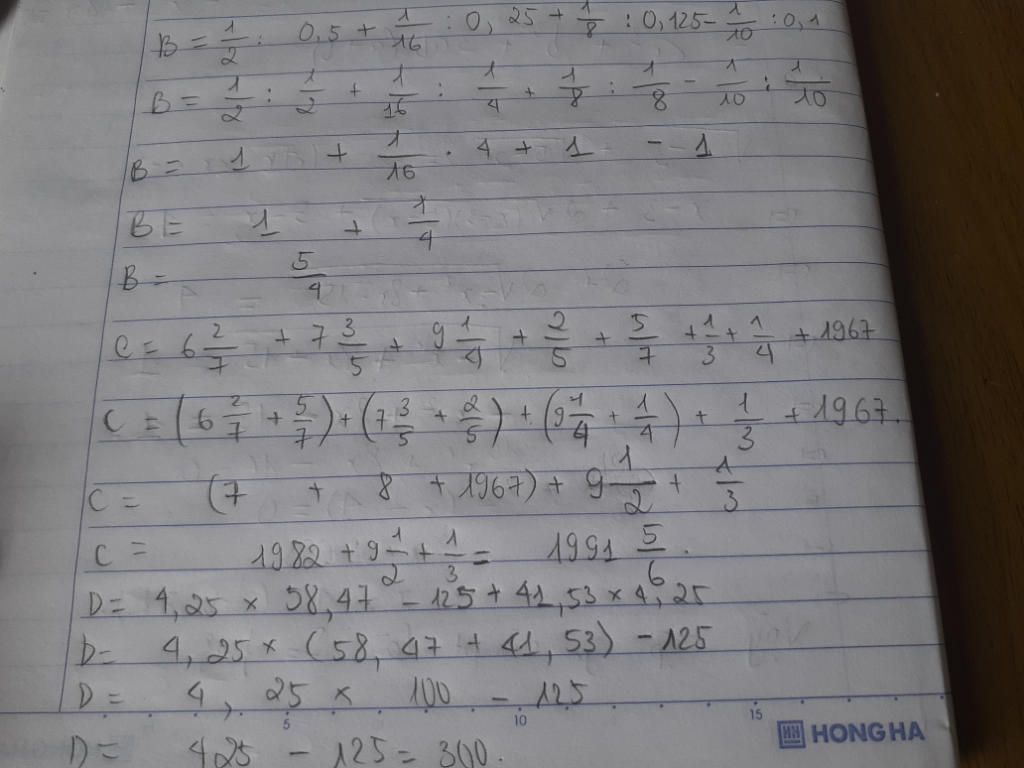 B = 1/2 : 0,5 + 1/16 : 0,25 + 1/8 : 0,125 - 1/10 : 0,1
B = 1/2 : 1/2 + 1/16 : 1/4 + 1/8 : 1/8 - 1/10 : 1/10
B = 1 + 1/16 . 4 + 1 - 1
B = 1 + 1/4
B = 5/4
C = 6 2/7 + 7 3/5 + 9 1/4 + 2/5 + 5/7 + 1/3 + 1/4 + 1967
C = (6 2/7 + 5/7) + (7 3/5 + 2/5) + (9 1/4 + 1/4) + 1/3 + 1967.
C = (7 + 8 + 1967) + 9 1/2 + 1/3
C = 1982 + 9 1/2 + 1/3 = 1991 5/6.
D = 4,25 × 58,47 - 125 + 41,53 × 4,25
D = 4,25 × (58,47 + 41,53) - 125
D = 4,25 × 100 - 125
5 10 15
HONG HA
D = 425 - 125 = 300.